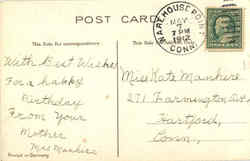 POST CARD
This Side for correspondence.
This Side for
WAREHOUSE POINT
MAY
7
7 PM
1912
CONN.
With Best Wishes
For a happy
Birthday
From your
Mother
Mrs
Printed in Germany
Miss Kate
271 Farmington Av
Hartford,
Conn.,